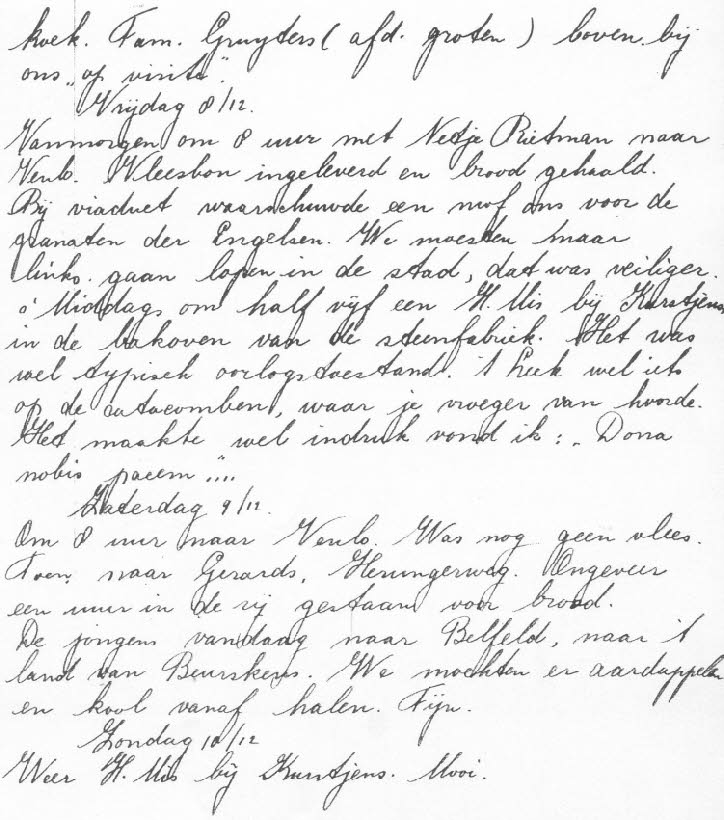 koek. Fam. Gruyters (afd. groten) boven bij
ons „op visite".
Vrijdag 8/12.
Vanmorgen om 8 uur met Netje Rietman naar
Venlo. Vleesbon ingeleverd en brood gehaald.
Bij viaduct waarschuwde een mof ons voor de
granaten der Engelsen. We moesten maar
links gaan lopen in de stad, dat was veiliger.
's Middags om half vijf een H. Mis bij Kurstjens
in de bakoven van de steenfabriek. Het was
wel typisch oorlogstoestand. 't Leek wel iets
op de catacomben, waar je vroeger van hoorde.
Het maakte wel indruk vond ik: „Dona
nobis pacem"...
Zaterdag 9/12.
Om 8 uur naar Venlo. Was nog geen vlees.
Toen naar Gerards, Herungerweg. Ongeveer
een uur in de rij gestaan voor brood.
De jongens vandaag naar Belfeld, naar 't
land van Beurskens. We mochten er aardappelen
en kool vanaf halen. Fijn.
Zondag 10/12
Weer H. Mis bij Kurstjens. Mooi.